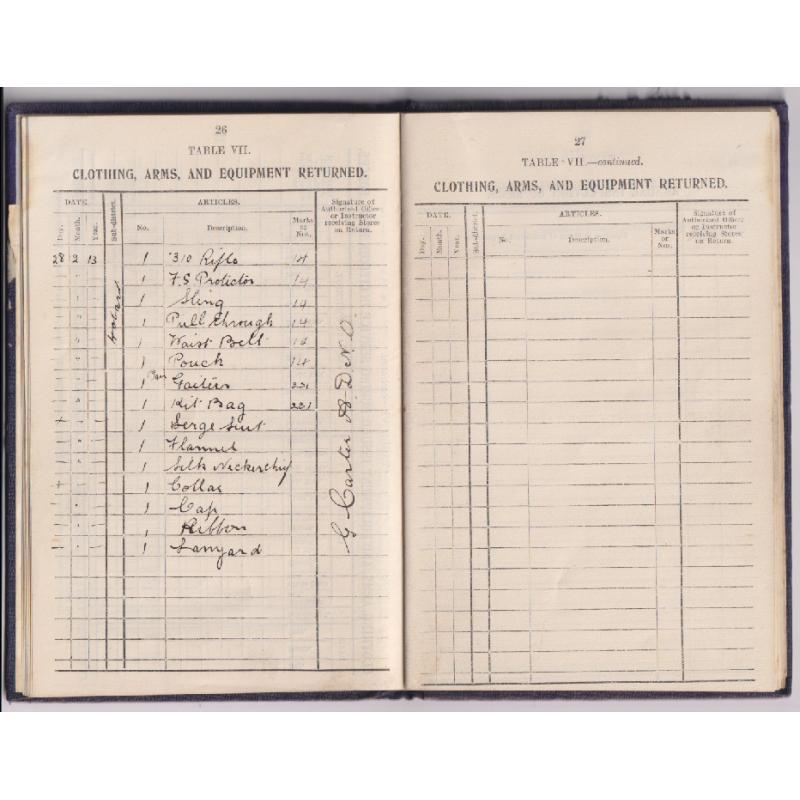 26
TABLE VII.
CLOTHING, ARMS, AND EQUIPMENT RETURNED.
DATE. Sub-district. ARTICLES. Signature of Authorized Officer or Instructor receiving Stores on Return.
Day. Month. Year. No. Description. Marks or Nos.
28 2 13 1 .310 Rifle 14
1 F.S Protector 14
1 Sling 14
1 Pull through 14
1 Waist Belt 14
1 Pouch 14
1 Pair Gaiters 221
1 Kit Bag 221
1 Serge Suit
1 Flannel
1 Silk Neckerchief
1 Collar
1 Cap
1 Ribbon
1 Lanyard
Hobart
G Carter
27
TABLE VII.—continued.
CLOTHING, ARMS, AND EQUIPMENT RETURNED.
DATE. Sub-district. ARTICLES. Signature of Authorized Officer or Instructor receiving Stores on Return.
Day. Month. Year. No. Description. Marks or Nos.